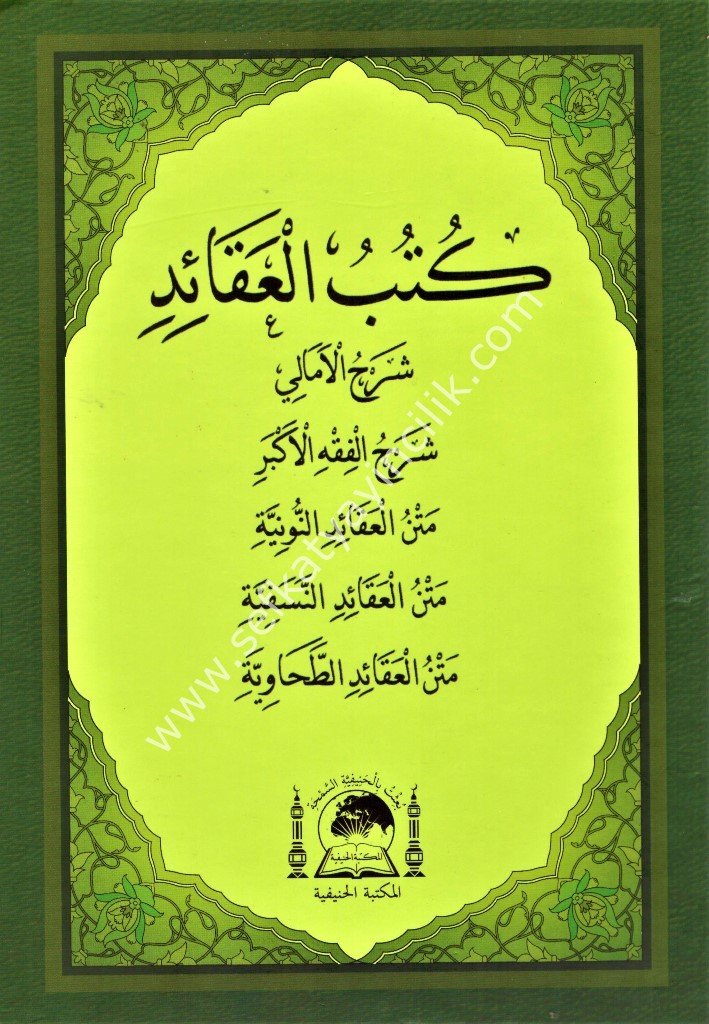 كُتُبُ الْعَقَائِدِ
شَرْحُ الْأَمَالِي
شَرْحُ الْفِقْهِ الْأَكْبَرِ
مَتْنُ الْعَقَائِدِ النُّونِيَّةِ
مَتْنُ الْعَقَائِدِ النَّسَفِيَّةِ
مَتْنُ الْعَقَائِدِ الطَّحَاوِيَّةِ
www.sefkatyayincilik.com
بُعِثْتُ بِالْحَنِيفِيَّةِ السَّمْحَةِ
المكتبة الحنيفية
المكتبة الحنيفية